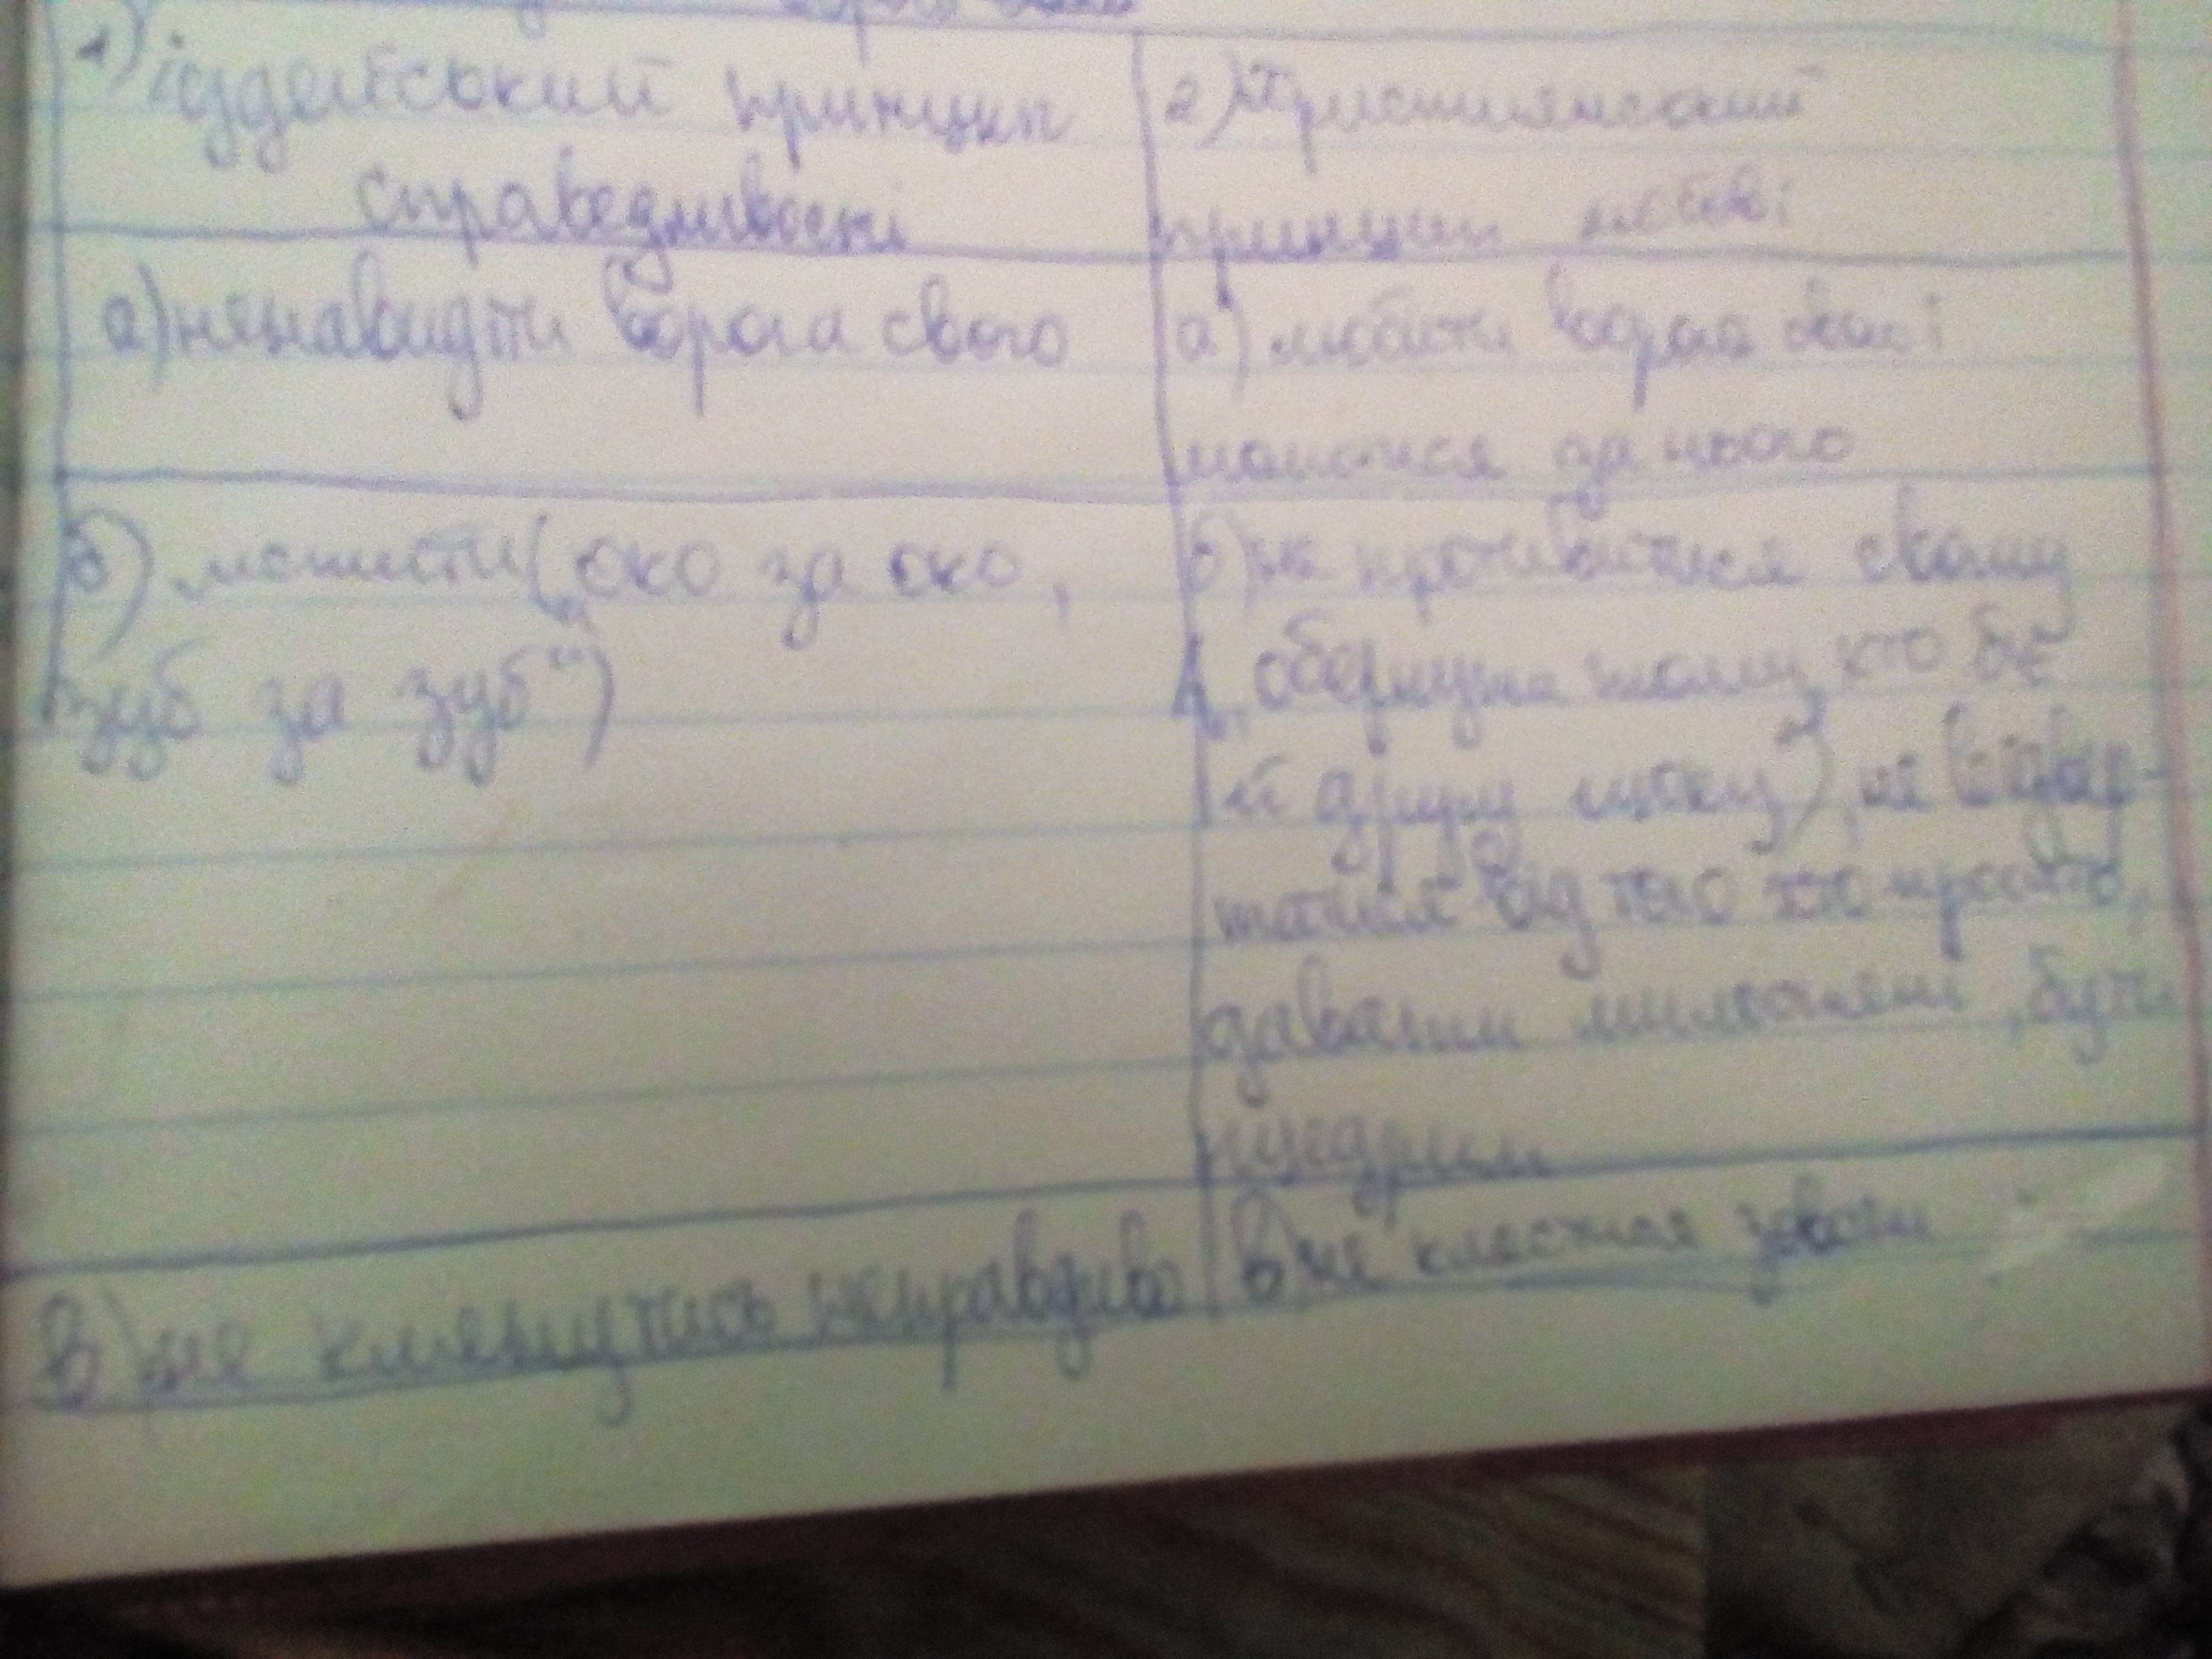 1) іудейський принцип
справедливості
а) ненавидіти ворога свого
б) мстити („око за око,
зуб за зуб“)
в) не клянучись неправдиво
2) Християнський
принцип любові
а) любити ворога і
молитися за нього
б) не противитися
(„обернути тому, хто б'є
й другу щоку), не відвер-
татися від того хто просить,
давати милостині, бути
щедрим
в) не клястися зовсім